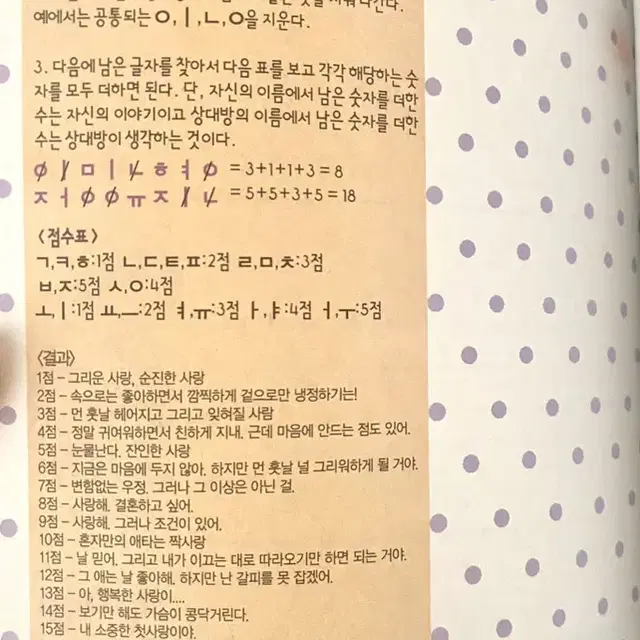 예에서는 공통되는 ㅇ,ㅣ,ㄴ,ㅇ을 지운다.
3. 다음에 남은 글자를 찾아서 다음 표를 보고 각각 해당하는 숫
자를 모두 더하면 된다. 단, 자신의 이름에서 남은 숫자를 더한
수는 자신의 이야기이고 상대방의 이름에서 남은 숫자를 더한
수는 상대방이 생각하는 것이다.
ㅇㅣㅁㅣㄴㅎㅕㅇ = 3+1+1+3 = 8
ㅈㅓㅇㅇㅠㅈㅣㄴ = 5+5+3+5 = 18
〈점수표〉
ㄱ,ㅋ,ㅎ:1점 ㄴ,ㄷ,ㅌ,ㅍ:2점 ㄹ,ㅁ,ㅊ:3점
ㅂ,ㅈ:5점 ㅅ,ㅇ:4점
ㅗ,ㅣ:1점 ㅛ,ㅡ:2점 ㅕ,ㅠ:3점 ㅏ,ㅑ:4점 ㅓ,ㅜ:5점
〈결과〉
1점 – 그리운 사랑, 순진한 사랑
2점 – 속으로는 좋아하면서 깜찍하게 겉으로만 냉정하기는!
3점 – 먼 훗날 헤어지고 그리고 잊혀질 사람
4점 – 정말 귀여워하면서 친하게 지내. 근데 마음에 안드는 점도 있어.
5점 – 눈물난다. 잔인한 사랑
6점 – 지금은 마음에 두지 않아. 하지만 먼 훗날 널 그리워하게 될 거야.
7점 – 변함없는 우정. 그러나 그 이상은 아닌 걸.
8점 – 사랑해. 결혼하고 싶어.
9점 – 사랑해. 그러나 조건이 있어.
10점 – 혼자만의 애타는 짝사랑
11점 – 날 믿어. 그리고 내가 이끄는 대로 따라오기만 하면 되는 거야.
12점 – 그 애는 날 좋아해. 하지만 난 갈피를 못 잡겠어.
13점 – 아, 행복한 사랑이....
14점 – 보기만 해도 가슴이 콩닥거린다.
15점 – 내 소중한 첫사랑이야.